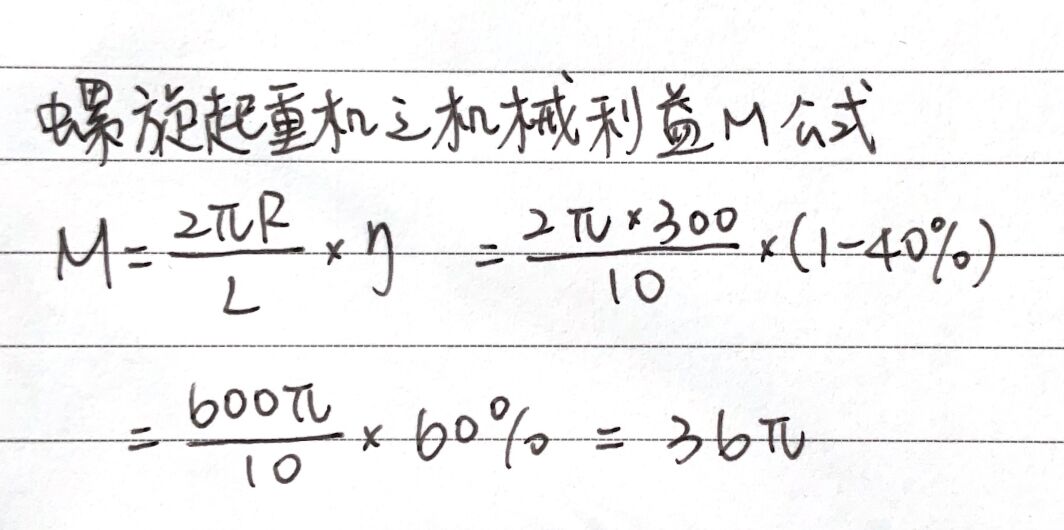 螺旋起重机之机械利益M公式
M = 2πR/L × η = 2π×300/10 ×(1-40%)
= 600π/10 × 60% = 36π